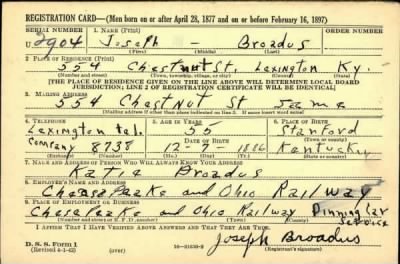 REGISTRATION CARD—(Men born on or after April 28, 1877 and on or before February 16, 1897)
SERIAL NUMBER 1. NAME (Print) ORDER NUMBER
U 2904 Joseph - Broadus
(First) (Middle) (Last)
2. PLACE OF RESIDENCE (Print)
554 Chestnut St, Lexington Ky.
(Number and street) (Town, township, village, or city) (County) (State)
[THE PLACE OF RESIDENCE GIVEN ON THE LINE ABOVE WILL DETERMINE LOCAL BOARD
JURISDICTION; LINE 2 OF REGISTRATION CERTIFICATE WILL BE IDENTICAL]
3. MAILING ADDRESS
554 Chestnut St same
[Mailing address if other than place indicated on line 2. If same insert word same]
4. TELEPHONE 5. AGE IN YEARS 6. PLACE OF BIRTH
Lexington tel. 55 Stanford
DATE OF BIRTH (Town or county)
Company 8738 12-7-1886 Kentucky
(Exchange) (Number) (Mo.) (Day) (Yr.) (State or country)
7. NAME AND ADDRESS OF PERSON WHO WILL ALWAYS KNOW YOUR ADDRESS
Katie Broadus
8. EMPLOYER'S NAME AND ADDRESS
Chesapeake and Ohio Railway
9. PLACE OF EMPLOYMENT OR BUSINESS
Chesapeake and Ohio Railway Dinning Car Service
(Number and street or R. F. D. number) (Town) (County) (State)
I AFFIRM THAT I HAVE VERIFIED ABOVE ANSWERS AND THAT THEY ARE TRUE.
D. S. S. Form 1
(Revised 4-1-42) (over) Joseph Broadus
(Registrant's signature)